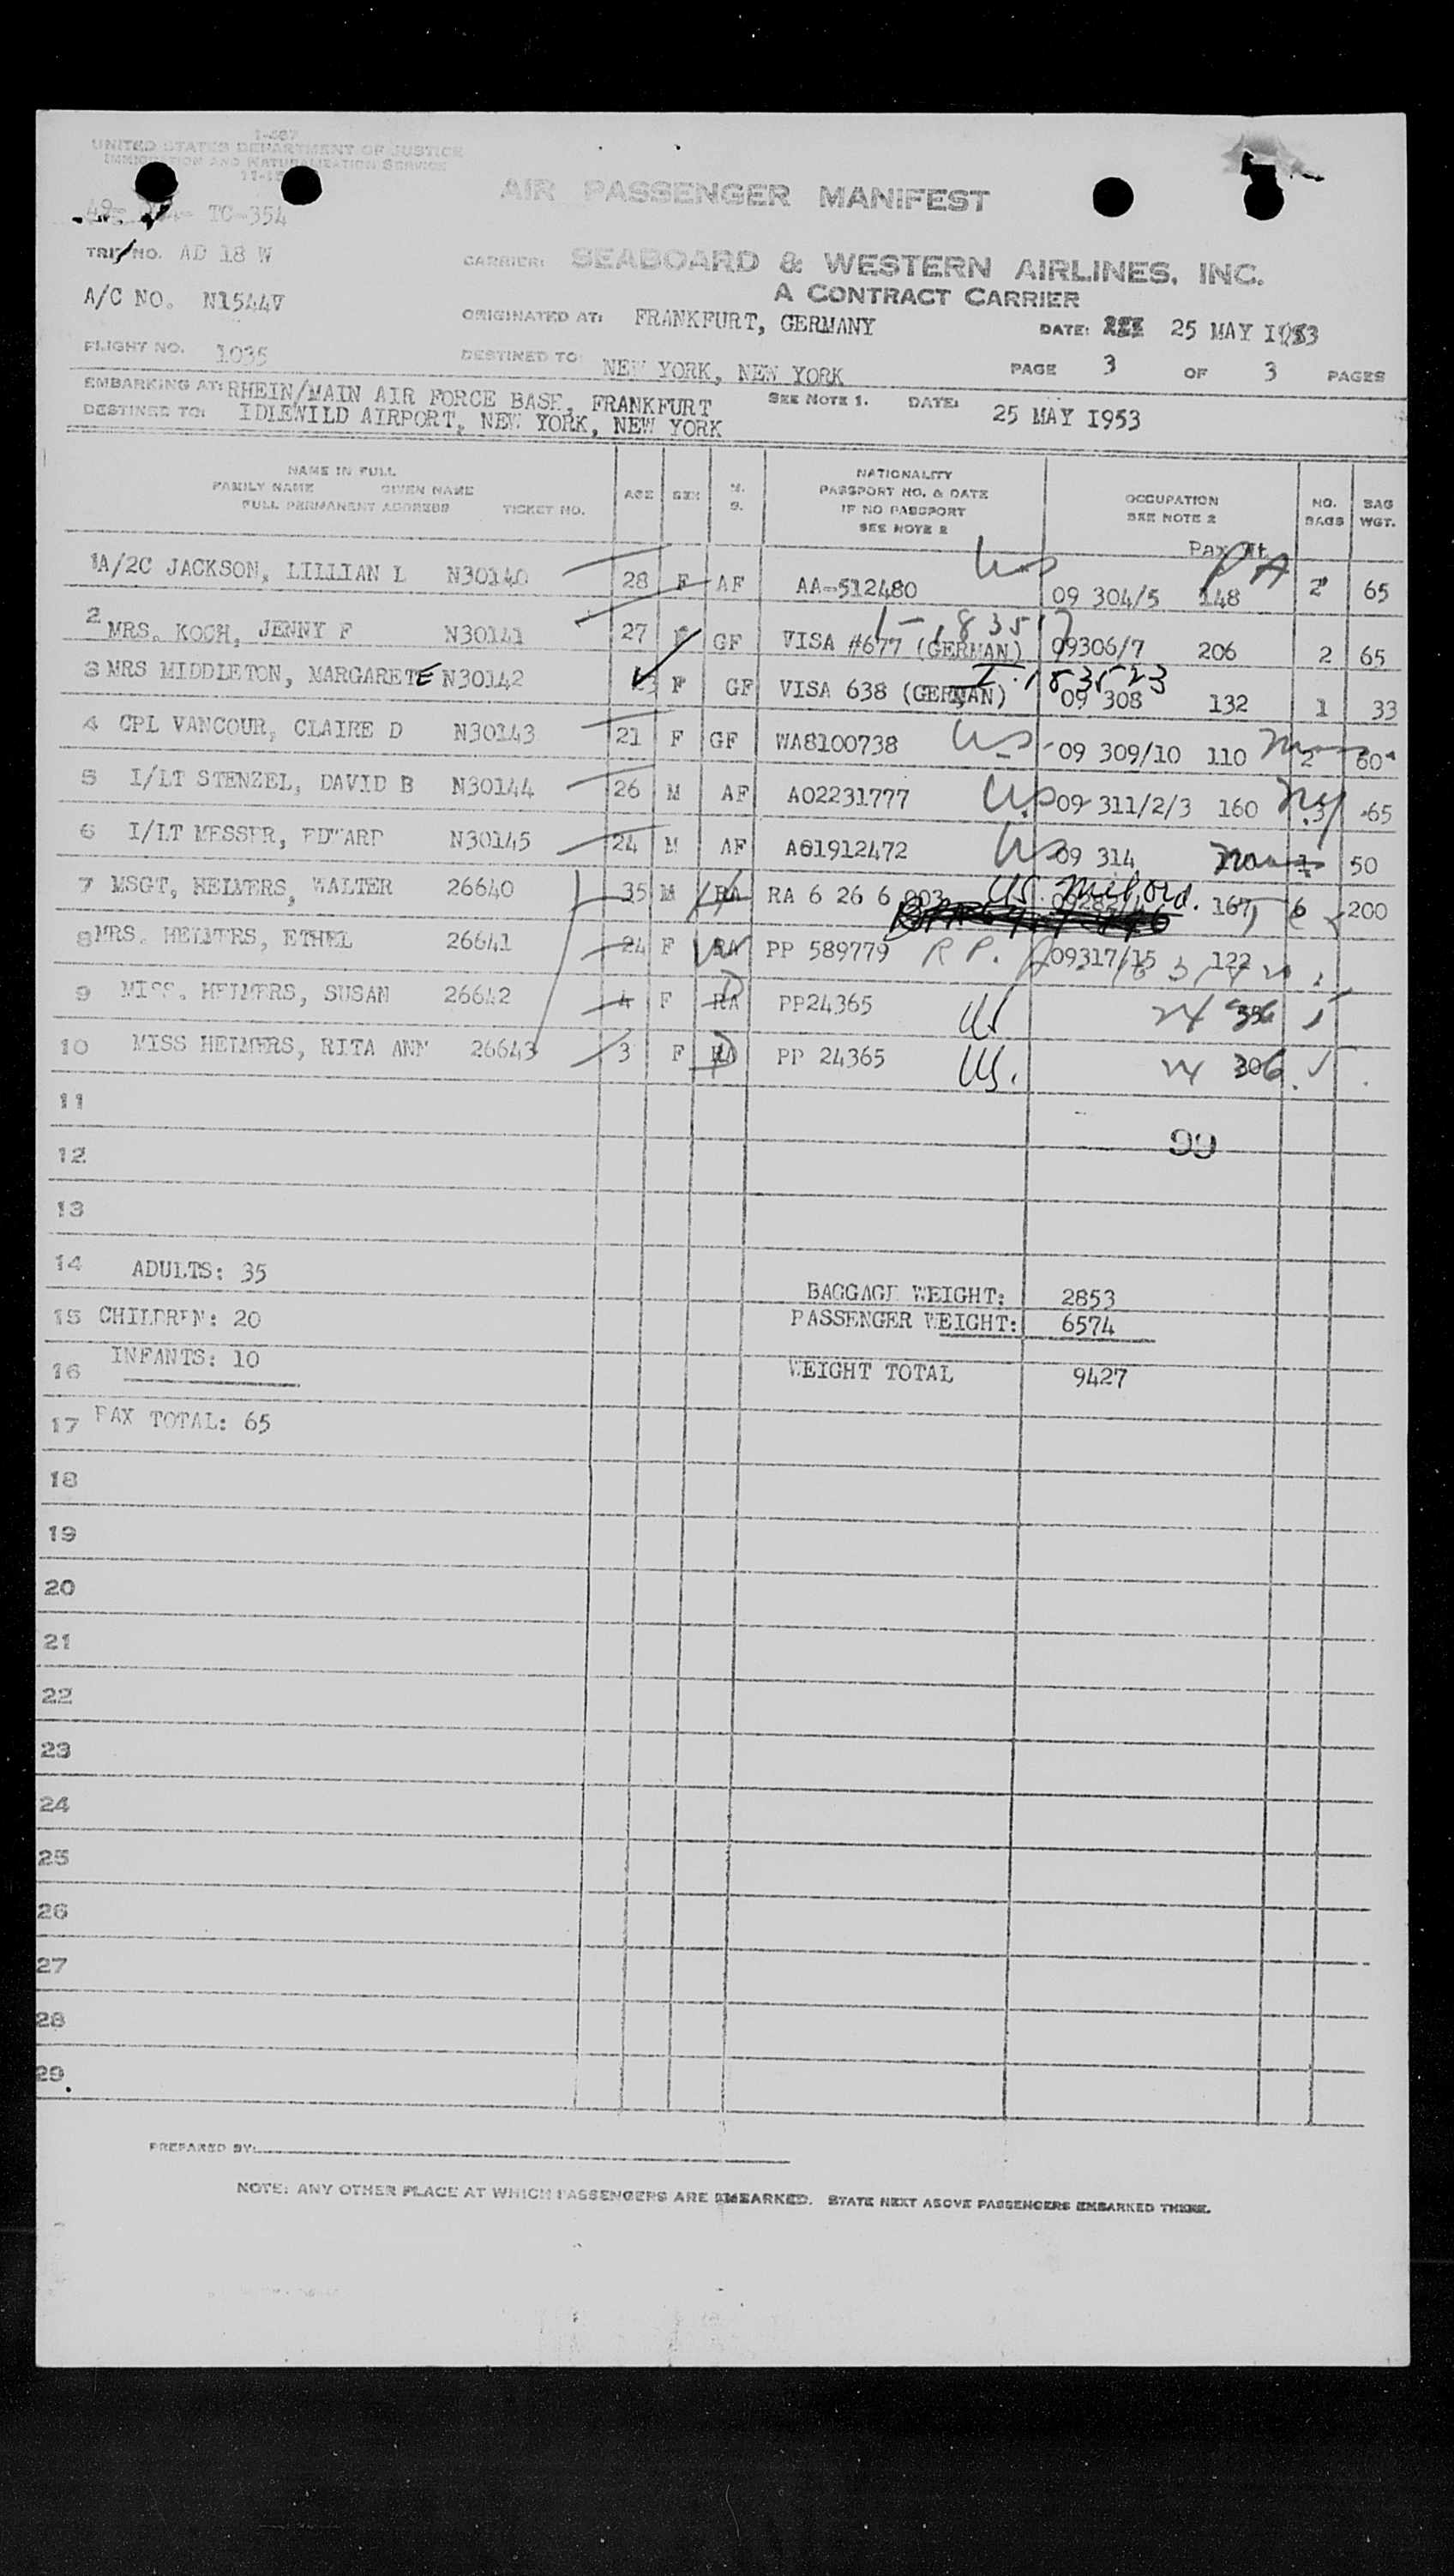 I-487
UNITED STATES DEPARTMENT OF JUSTICE
IMMIGRATION AND NATURALIZATION SERVICE
AIR PASSENGER MANIFEST
TC-354
TRIP NO. AD 18 W
CARRIER: SEABOARD & WESTERN AIRLINES, INC.
A CONTRACT CARRIER
A/C NO. N1544V
ORIGINATED AT: FRANKFURT, GERMANY DATE: 25 MAY 1953
FLIGHT NO. 1035
DESTINED TO: NEW YORK, NEW YORK PAGE 3 OF 3 PAGES
EMBARKING AT: RHEIN/MAIN AIR FORCE BASE, FRANKFURT SEE NOTE 1. DATE: 25 MAY 1953
DESTINED TO: IDLEWILD AIRPORT, NEW YORK, NEW YORK
NAME IN FULL
FAMILY NAME GIVEN NAME
FULL PERMANENT ADDRESS TICKET NO.
AGE SEX M. S.
NATIONALITY
PASSPORT NO. & DATE
IF NO PASSPORT
SEE NOTE 2
OCCUPATION
SEE NOTE 2
NO. BAGS
BAG WGT.
Pax Wt
1 A/2C JACKSON, LILLIAN L N30140 28 F AF AA-512480 US 09 304/5 148 PA 2 65
2 MRS. KOCH, JENNY F N30141 27 F GF VISA #677 (GERMAN) 09306/7 206 2 65
3 MRS MIDDLETON, MARGARETE N30142 F GF VISA 638 (GERMAN) 09 308 132 1 33
4 CPL VANCOUR, CLAIRE D N30143 21 F GF WA8100738 US 09 309/10 110 2 60
5 I/LT STENZEL, DAVID B N30144 26 M AF AO2231777 US 09 311/2/3 160 NY 3 65
6 I/LT MESSER, EDWARD N30145 24 M AF AO1912472 US 09 314 1 50
7 MSGT, HEIMERS, WALTER 26640 35 M RA RA 6 26 6 003 US 167 6 200
8 MRS. HEIMERS, ETHEL 26641 24 F RA PP 589779 R P. 09317/15 122
9 MISS. HEIMERS, SUSAN 26642 4 F RA PP24365 US
10 MISS HEIMERS, RITA ANN 26643 3 F RA PP 24365 US. 306
11
99
12
13
14 ADULTS: 35
BAGGAGE WEIGHT: 2853
15 CHILDREN: 20 PASSENGER WEIGHT: 6574
16 INFANTS: 10 WEIGHT TOTAL 9427
17 PAX TOTAL: 65
18
19
20
21
22
23
24
25
26
27
28
29
PREPARED BY:
NOTE: ANY OTHER PLACE AT WHICH PASSENGERS ARE EMBARKED. STATE NEXT ABOVE PASSENGERS EMBARKED THERE.